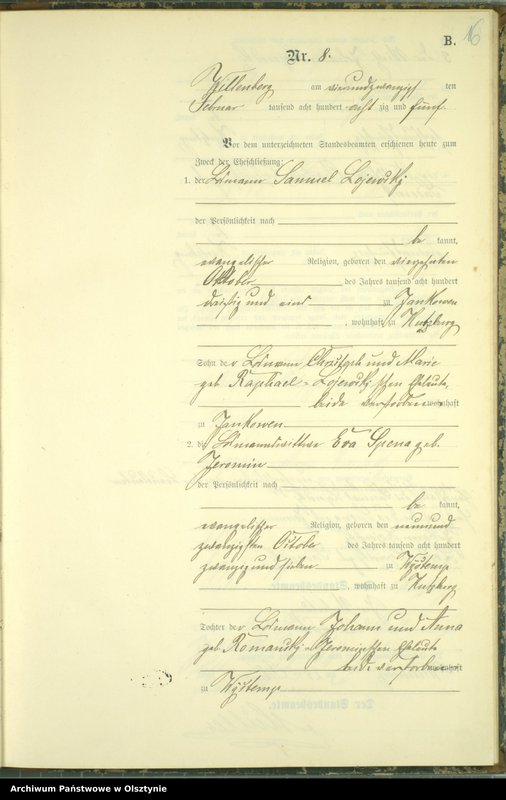 B. 16
Nr. 8.
Willenberg am vierundzwanzigsten
Februar tausend acht hundert achtzig und fünf
Vor dem unterzeichneten Standesbeamten erschienen heute zum
Zweck der Eheschließung:
1. der Losmann Samuel Lojewski
der Persönlichkeit nach
be kannt,
evangelischer Religion, geboren den vierzehnten
Oktober des Jahres tausend acht hundert
dreißig und eins zu Jankowen
, wohnhaft zu
Sohn der Losmann Christoph und Marie
geb Raphael-Lojewski'schen Eheleute,
beide verstorben wohnhaft
zu Jankowen
2. die Losmannswittwe Eva Spena geb.
Jeromin
der Persönlichkeit nach
be kannt,
evangelischer Religion, geboren den neunund
zwanzigsten October des Jahres tausend acht hundert
zwanzig und sieben zu Wystemp
, wohnhaft zu
Tochter der Losmann Johann und Anna
geb. Romanski-Jerominschen Eheleute
beide verstorben wohnhaft
zu Wystemp
Archiwum Państwowe w Olsztynie